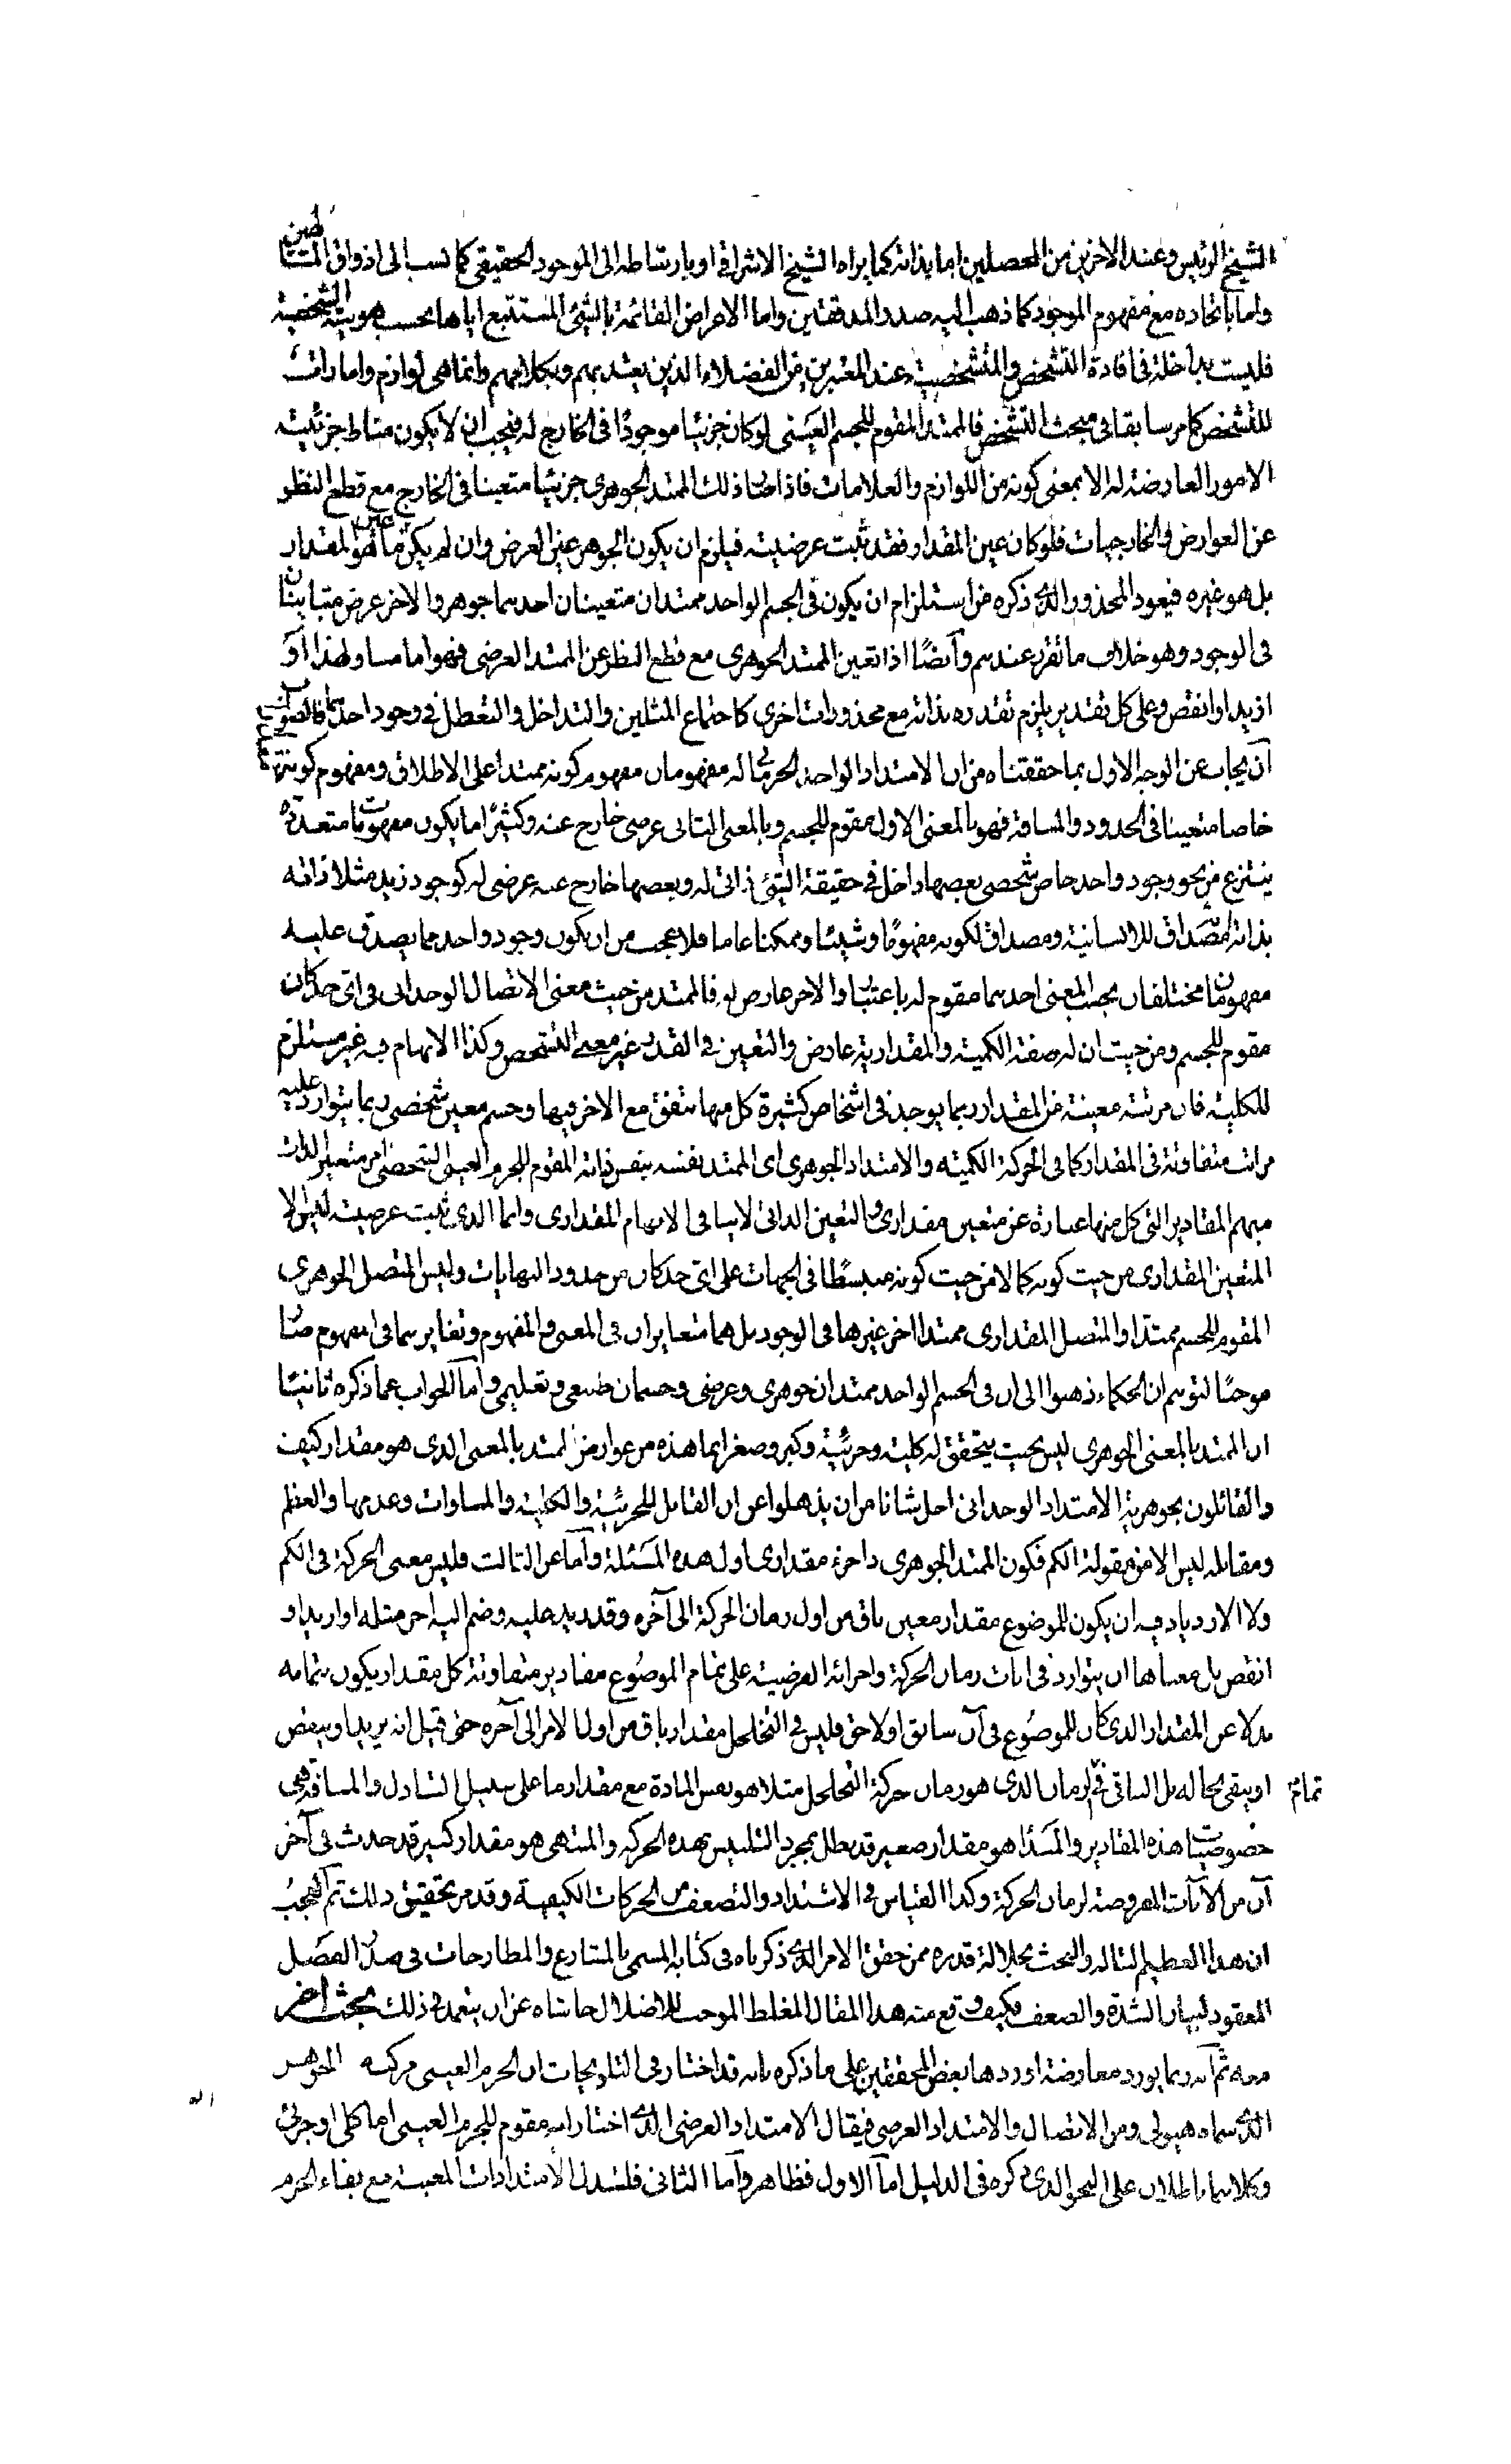 الشيخ الرئيس وعند الاخرين من المحصلين اما بذاته كما يراه الشيخ الاشراقي او بارتباطه الى الموجود الحقيقي كما نسب الى اذواق المتألهين
واما باتحاده مع مفهوم الموجود كما ذهب اليه صدر المدققين واما الاعراض القائمة بالشئ المستتبع اياها بحسب هويته الشخصية
فليست بداخلة في افادة التشخص والمتشخصية عند المعتبرين من الفضلاء الذين يعتد بهم وبكلامهم وانما هي لوازم وامارات
للتشخص كما مر سابقا في مبحث التشخص فالممتد المقوم للجسم العيني لو كان جزئيا موجودا في الخارج له فيجب ان لا يكون مناط جزئيته
الامور العارضة له الا بمعنى كونه من اللوازم والعلامات فاذا كان ذلك الممتد الجوهري جزئيا متعينا في الخارج مع قطع النظر
عن العوارض والخارجيات فلو كان عين المقدار فقد ثبت عرضيته فيلزم ان يكون الجوهر عين العرض وان لم يكن ما هو عين المقدار
بل هو غيره فيعود المحذور الذي ذكره من استلزام ان يكون في الجسم الواحد ممتدان متعينان احدهما جوهر والاخر عرض متباينان
في الوجود وهو خلاف ما تقرر عندهم وايضا اذا تعين الممتد الجوهري مع قطع النظر عن الممتد العرضي فهو اما مساو لهذا او
ازيد او انقص وعلى كل تقدير يلزم تقدره بذاته مع محذورات اخرى كاجتماع المثلين والتداخل والتعطل في وجود احدهما فالصواب
ان يجاب عن الوجه الاول بما حققناه من ان الامتداد الواحد الجرماني له مفهومان مفهوم كونه ممتدا على الاطلاق ومفهوم كونه
خاصا متعينا في الحدود والمسافة فهو بالمعنى الاول مقوم للجسم وبالمعنى الثاني عرضي خارج عنه وكثيرا ما يكون مفهومات متعددة
ينتزع من نحو وجود واحد خاص شخصي بعضها داخل في حقيقة الشئ ذاتي له وبعضها خارج عنه عرضي له كوجود زيد مثلا فانه
بذاته مصداق للانسانية ومصداق لكونه مفهوما وشيئا وممكنا عاما فلا عجب من ان يكون وجود واحد مما يصدق عليه
مفهومان مختلفان بحسب المعنى احدهما مقوم له باعتبار والاخر عارض له فالممتد من حيث معنى الاتصال الوحداني في اي حد كان
مقوم للجسم ومن حيث ان له صفة الكمية والمقدارية عارض والتعين في القدر غير معنى التشخص وكذا الابهام فيه غير مستلزم
للكلية فان مرتبة معينة من المقدار ربما يوجد في اشخاص كثيرة كل منها متفق مع الاخر فيها وجسم معين شخصي ربما يتوارد عليه
مراتب متفاوتة في المقدار كما في الحركة الكمية والامتداد الجوهري اى الممتد بنفسه بنفس ذاته المقوم للجرم العيني الشخصي امر متعين الذات
مبهم المقادير التي كل منها عبارة عن متعين مقداري والتعين الذاتي لا ينافي الابهام المقداري وانما الذي ثبت عرضيته ليس الا
المتعين المقداري من حيث كونه كما لا من حيث كونه منبسطا في الجهات على اي حد كان من حدود النهايات وليس المتصل الجوهري
المقوم للجسم ممتدا والمتصل المقداري ممتدا اخر غيرها في الوجود بل هما متغايران في المعنى والمفهوم وتغايرهما في المفهوم صار
موجبا لتوهم ان الحكماء ذهبوا الى ان في الجسم الواحد ممتدان جوهري وعرضي وجسمان طبيعي وتعليمي واما الجواب عما ذكره ثانيا
ان الممتد بالمعنى الجوهري ليس بحيث يتحقق له كلية وجزئية وكبر وصغر انما هذه من عوارض الممتد بالمعنى الذي هو مقدار كيف
والقائلون بجوهرية الامتداد الوحداني اجل شانا من ان يذهلوا عن ان القابل للجزئية والكلية والمساوات وعدمها والعظم
ومقابله ليس الا من مقولة الكم فكون الممتد الجوهري ذا جزء مقداري اول هذه المسئلة واما عن الثالث فليس معنى الحركة في الكم
ولا الازدياد فيه ان يكون للموضوع مقدار معين باق من اول زمان الحركة الى آخره وقد زيد عليه وضم اليه اخر مثله او ازيد او
انقص بل معناها ان يتوارد في آنات زمان الحركة واجزائه الفرضية على تمام الموضوع مقادير متفاوتة كل مقدار يكون بتمامه
بدلا عن المقدار الذي كان للموضوع في آن سابق او لاحق فليس في التخلخل مقدار باق من اول الامر الى آخره حتى قيل انه يزيد او ينقص
او يبقى بحاله بل الباقي في تمام الزمان الذي هو زمان حركة التخلخل مثلا هو نفس المادة مع مقدار ما على سبيل التبادل والمسافة هي
خصوصيات هذه المقادير والمبدأ هو مقدار صغير قد بطل بمجرد التلبس بهذه الحركة والمنتهى هو مقدار كبير قد حدث في آخر
آن من الآنات المفروضة لزمان الحركة وكذا القياس في الاشتداد والتضعف من الحركات الكيفية وقد مر تحقيق ذلك ثم العجب
ان هذا العظيم التاله والبحث بجلالة قدره ممن حقق الامر الذي ذكرناه في كتابه المسمى بالمشارع والمطارحات في صدر الفصل
المعقود لبيان الشدة والضعف فكيف وقع منه هذا المقال المغلط الموجب للاضلال حاشاه عن ان يتعمد في ذلك بحث اخر
معه ثم انه ربما يورد معارضة اوردها بعض المحققين على ما ذكره بانه قد اختار في التلويحات ان الجرم العيني مركب الجوهر
الذي سماه هيولى ومن الاتصال والامتداد العرضي فيقال الامتداد العرضي الذي اختار انه مقوم للجرم العيني اما كلي او جزئي
وكلاهما باطلان على النحو الذي ذكره في الدليل اما الاول فظاهر واما الثاني فلتبدل الامتدادات المعينة مع بقاء الجرم